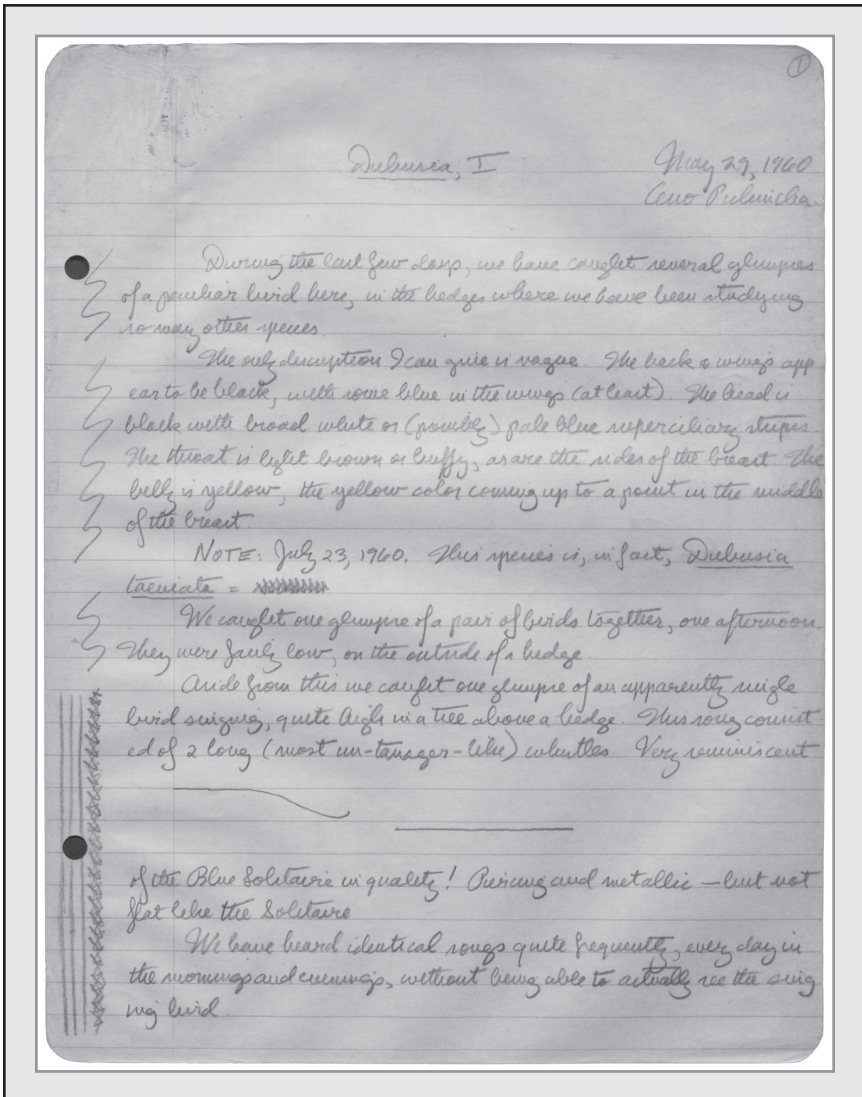 ①
Dubusia, I
May 29, 1960
Cerro Pichincha.
During the last few days, we have caught several glimpses
of a peculiar bird here, in the hedges where we have been studying
so many other species.
The only description I can give is vague. The back & wings app
ear to be black, with some blue in the wings (at least). The head is
black with broad white or (possibly) pale blue superciliary stripes.
The throat is light brown or buffy, as are the sides of the breast. The
belly is yellow, the yellow color coming up to a point in the middle
of the breast.
NOTE: July 23, 1960. This species is, in fact, Dubusia
taeniata =
We caught one glimpse of a pair of birds together, one afternoon.
They were fairly low, on the outside of a hedge.
Aside from this we caught one glimpse of an apparently single
bird singing, quite high in a tree above a hedge. This song consist
ed of 2 long (most un-tanager-like) whistles. Very reminiscent
of the Blue Solitaire in quality! Piercing and metallic — but not
flat like the Solitaire
We have heard identical songs quite frequently, every day in
the mornings and evenings, without being able to actually see the sing
ing bird.